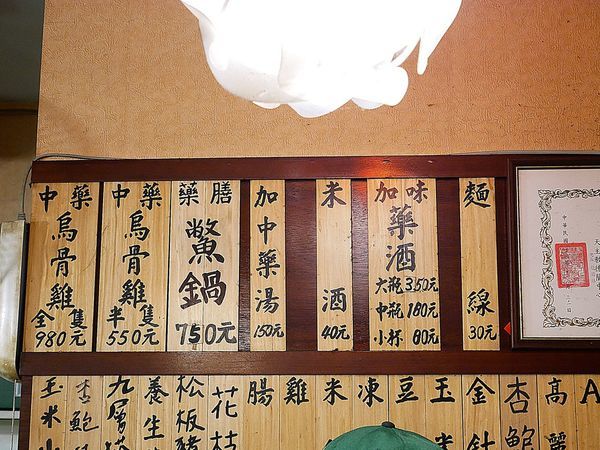 中藥烏骨雞全隻980元
中藥烏骨雞半隻550元
藥膳鱉鍋750元
加中藥湯150元
米酒40元
加味藥酒
大瓶350元
中瓶180元
小杯80元
麵線30元
玉米
杏鮑
九層塔
養生
松板豬
花枝
腸
雞
米
凍
豆
玉
金針
杏鮑
高麗
A
中華民國